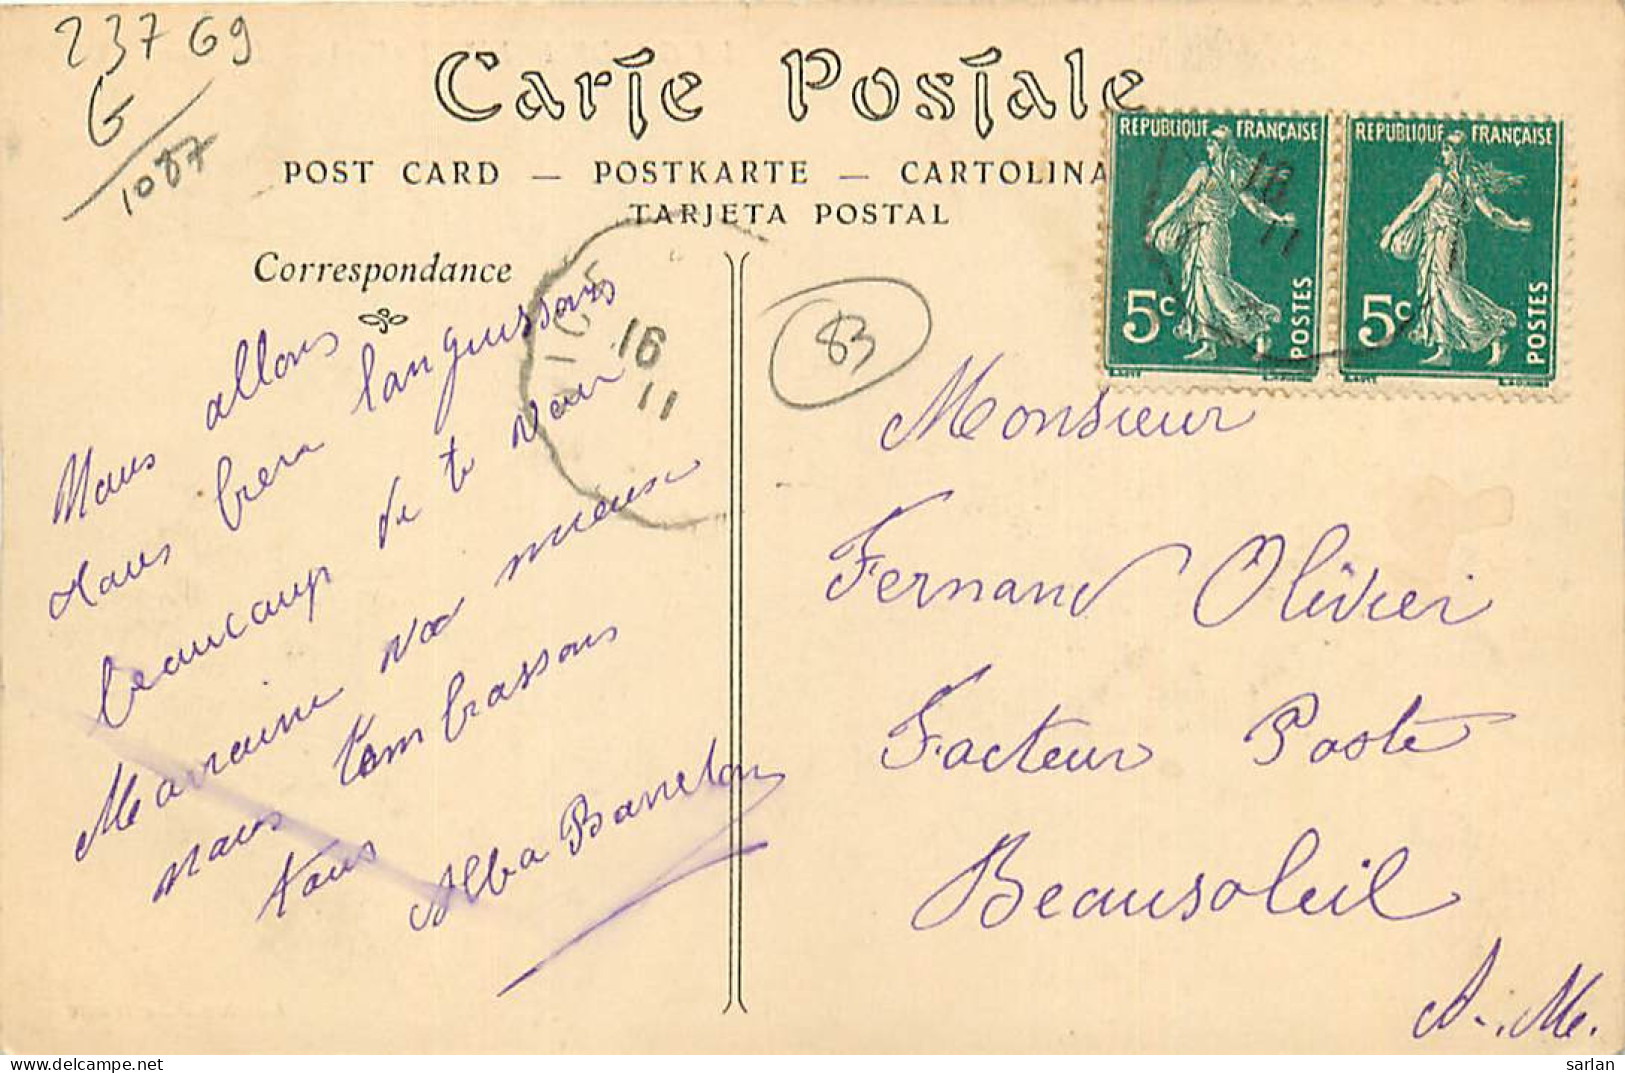 23769
G
1087
Carte Postale
POST CARD — POSTKARTE — CARTOLINA
TARJETA POSTAL
REPUBLIQUE FRANÇAISE
5c
POSTES
REPUBLIQUE FRANÇAISE
5c
POSTES
16
11
Correspondance
16
11
83
Nous allons
tous languissons
beaucoup de te voir
Marraine va mieux
nous t'embrassons
tous
Alba
Monsieur
Fernand Olivier
Facteur Poste
Beausoleil
A.-M.
sarlan